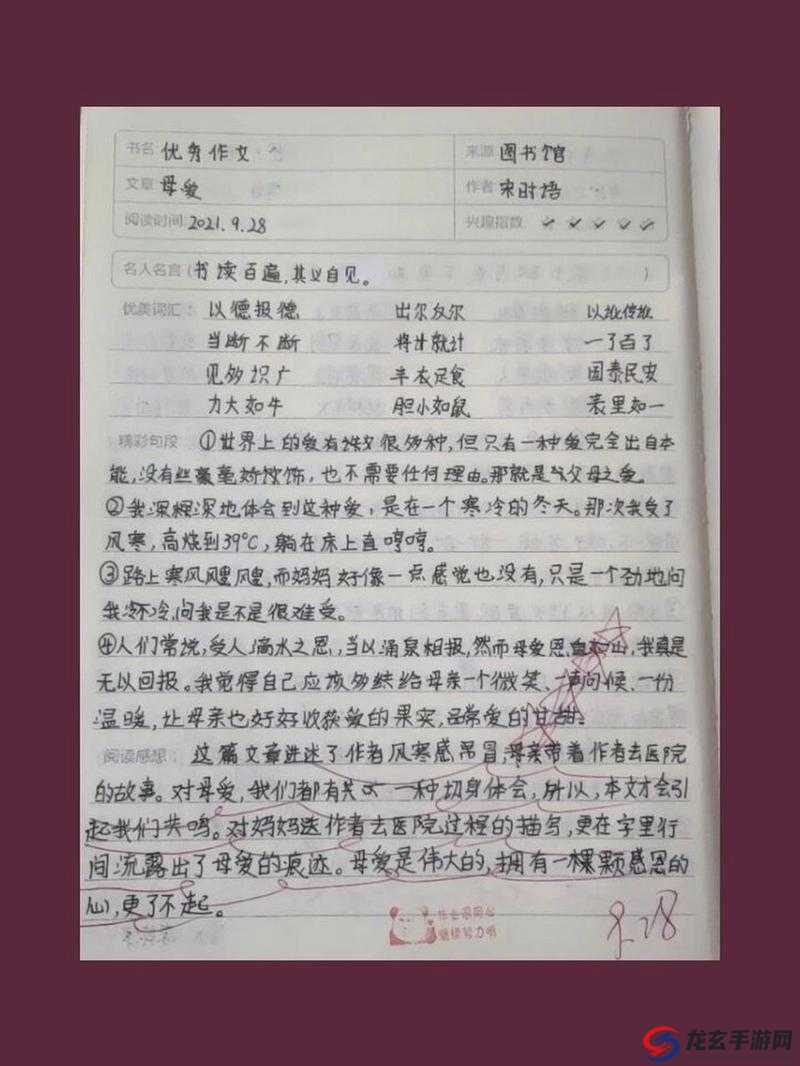 书名 优秀作文 来源 图书馆
文章 母爱 作者 宋时语
阅读时间 2021.9.28 兴趣指数
名人名言(书读百遍,其义自见。)
优美词汇: 以德报德 出尔反尔 以
当断不断 将计就计 一了百了
见多识广 丰衣足食 国泰民安
力大如牛 胆小如鼠 表里如一
精彩句段 ①世界上的爱有很多种,但只有一种爱完全出自本
能,没有丝毫矫饰,也不需要任何理由。那就是父母之爱。
②我深深地体会到这种爱,是在一个寒冷的冬天。那次我受了
风寒,高烧到39℃,躺在床上直哼哼。
③路上寒风,而妈妈好像一点感觉也没有,只是一个劲地问
我冷不冷,问我是不是很难受。
④人们常说,受人滴水之恩,当以涌泉相报,然而母爱恩,我真是
无以回报。我觉得自己应该多给母亲一个微笑、一声问候、一份
温暖,让母亲也好好收获爱的果实,品尝爱的甘甜。
阅读感想: 这篇文章讲述了作者风寒感冒,母亲带着作者去医院
的故事。对母爱,我们都有共一种切身体会,所以,本文才会引
起我们共鸣。对妈妈送作者去医院过程的描写,更在字里行
间流露出了母爱的痕迹。母爱是伟大的,拥有一棵颗感恩的
心,更了不起。
作业很用心
继续努力哦
9.28
龙玄手游网